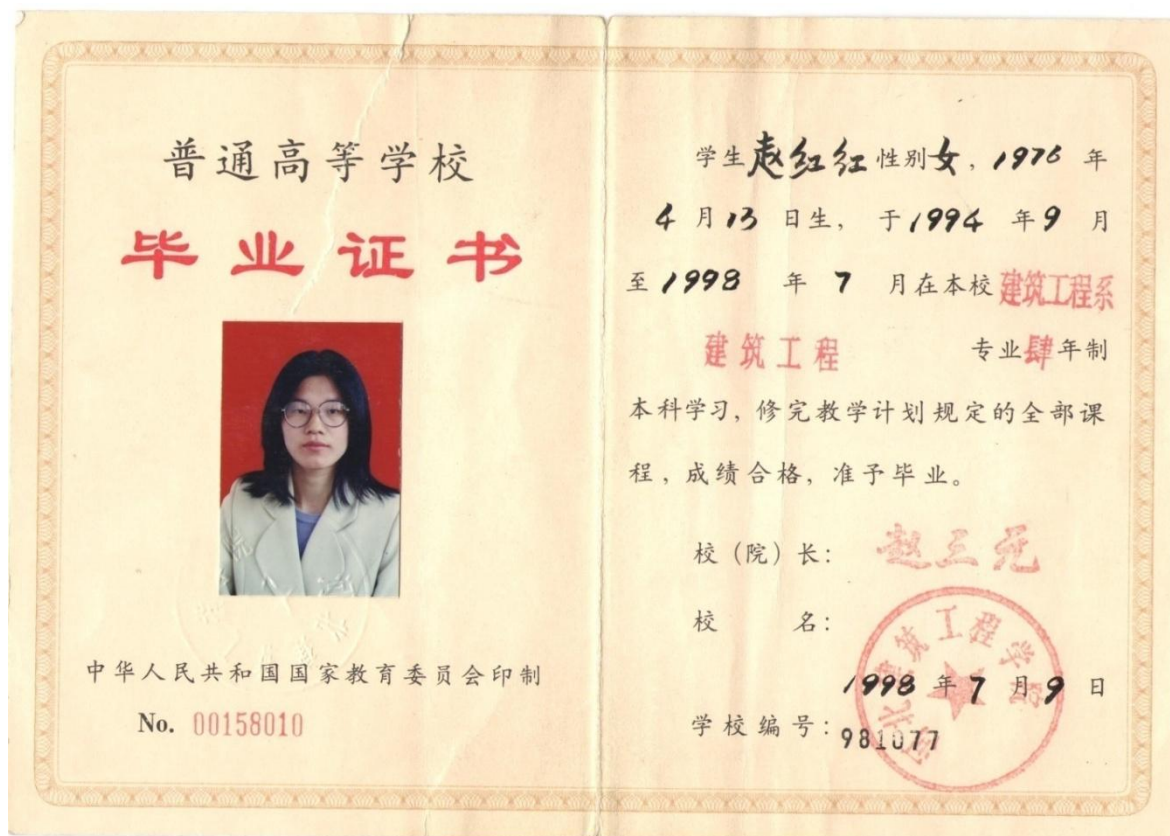 普通高等学校
毕业证书
中华人民共和国国家教育委员会印制
No. 00158010
学生赵红红性别女，1976 年
4 月 13 日生， 于 1994 年 9 月
至 1998 年 7 月在本校 建筑工程系
建筑工程 专业肆年制
本科学习，修完教学计划规定的全部课
程，成绩合格，准予毕业。
校（院）长： 赵三元
校 名：
河北建筑工程学院
1998 年 7 月 9 日
学校编号：981077